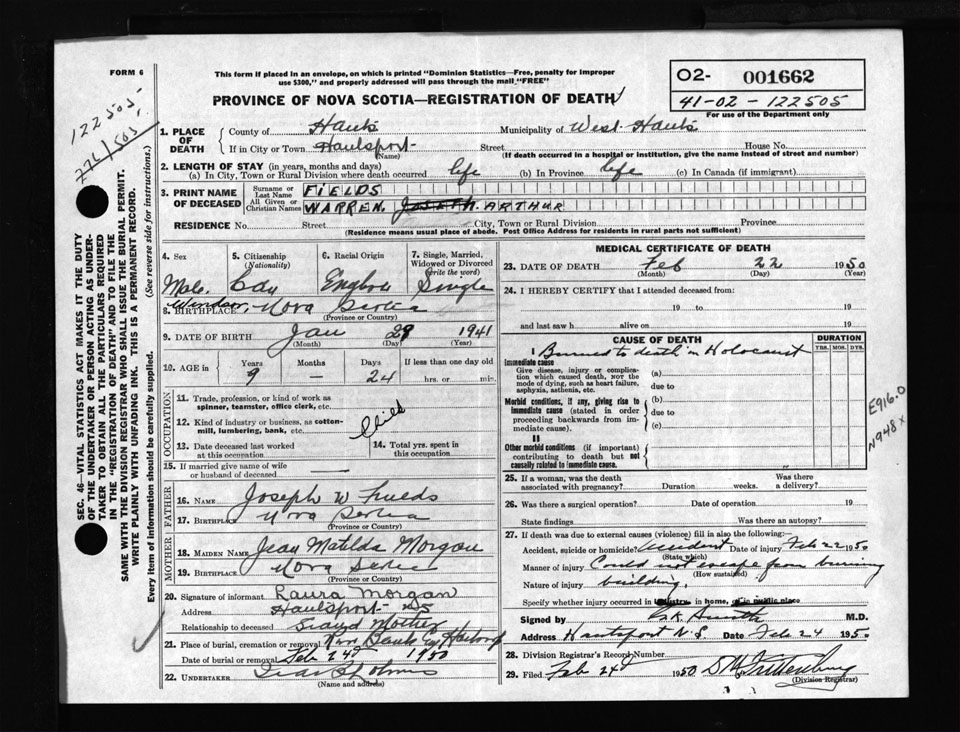 FORM 6
This form if placed in an envelope, on which is printed "Dominion Statistics—Free, penalty for improper
use $300," and properly addressed will pass through the mail "FREE"
PROVINCE OF NOVA SCOTIA—REGISTRATION OF DEATH
O2- 001662
41-02-122505
For use of the Department only
122505
SEC. 46—VITAL STATISTICS ACT MAKES IT THE DUTY
OF THE UNDERTAKER OR PERSON ACTING AS UNDER-
TAKER TO OBTAIN ALL THE PARTICULARS REQUIRED
IN THE "REGISTRATION OF DEATH" AND TO FILE THE
SAME WITH THE DIVISION REGISTRAR WHO SHALL ISSUE THE BURIAL PERMIT.
WRITE PLAINLY WITH UNFADING INK. THIS IS A PERMANENT RECORD.
Every item of information should be carefully supplied. (See reverse side for instructions.)
1. PLACE OF DEATH
County of Hants Municipality of West Hants
If in City or Town Hantsport Street House No.
(Name) (If death occurred in a hospital or institution, give the name instead of street and number)
2. LENGTH OF STAY (in years, months and days)
(a) In City, Town or Rural Division where death occurred life (b) In Province life (c) In Canada (if immigrant)
3. PRINT NAME OF DECEASED
Surname or Last Name FIELDS
All Given or Christian Names WARREN, JOSEPH ARTHUR
RESIDENCE No. Street City, Town or Rural Division Province
(Residence means usual place of abode. Post Office Address for residents in rural parts not sufficient)
4. Sex 5. Citizenship (Nationality) 6. Racial Origin 7. Single, Married, Widowed or Divorced (write the word)
Male. Cdn English Single
8. BIRTHPLACE Windsor, Nova Scotia
(Province or Country)
9. DATE OF BIRTH Jan 29 1941
(Month) (Day) (Year)
10. AGE in Years Months Days If less than one day old
9 — 24 hrs. or min.
OCCUPATION
11. Trade, profession, or kind of work as
spinner, teamster, office clerk, etc.
12. Kind of industry or business, as cotton-
mill, lumbering, bank, etc. Child
13. Date deceased last worked
at this occupation
14. Total yrs. spent in
this occupation
15. If married give name of wife
or husband of deceased
FATHER
16. NAME Joseph W Fields
17. BIRTHPLACE Nova Scotia
(Province or Country)
MOTHER
18. MAIDEN NAME Jean Matilda Morgan
19. BIRTHPLACE Nova Scotia
(Province or Country)
20. Signature of informant Laura Morgan
Address Hantsport NS
Relationship to deceased Grand Mother
21. Place of burial, cremation or removal
Date of burial or removal Feb 24 1950
22. UNDERTAKER
(Name and address)
MEDICAL CERTIFICATE OF DEATH
23. DATE OF DEATH Feb 22 1950
(Month) (Day) (Year)
24. I HEREBY CERTIFY that I attended deceased from:
19 to 19
and last saw h alive on 19
CAUSE OF DEATH DURATION
YRS. MOS. DYS.
I Burned to death in Holocaust
Immediate cause
Give disease, injury or complica-
tion which caused death, NOT the
mode of dying, such as heart failure,
asphyxia, asthenia, etc.
(a)
due to
Morbid conditions, if any, giving rise to
immediate cause (stated in order
proceeding backwards from im-
mediate cause).
(b)
due to
(c)
II
Other morbid conditions (if important)
contributing to death but not
causally related to immediate cause.
E916.0
N948x
25. If a woman, was the death
associated with pregnancy? Duration weeks. Was there
a delivery?
26. Was there a surgical operation? Date of operation 19
State findings Was there an autopsy?
27. If death was due to external causes (violence) fill in also the following:
Accident, suicide or homicide? Accident Date of injury Feb 22 1950
(State which)
Manner of injury Could not escape from burning
(How sustained)
Nature of injury building.
Specify whether injury occurred in industry, in home, or in public place
Signed by M.D.
Address Hantsport N.S. Date Feb 24 1950
28. Division Registrar's Record Number
29. Filed Feb 24 1950
(Division Registrar)